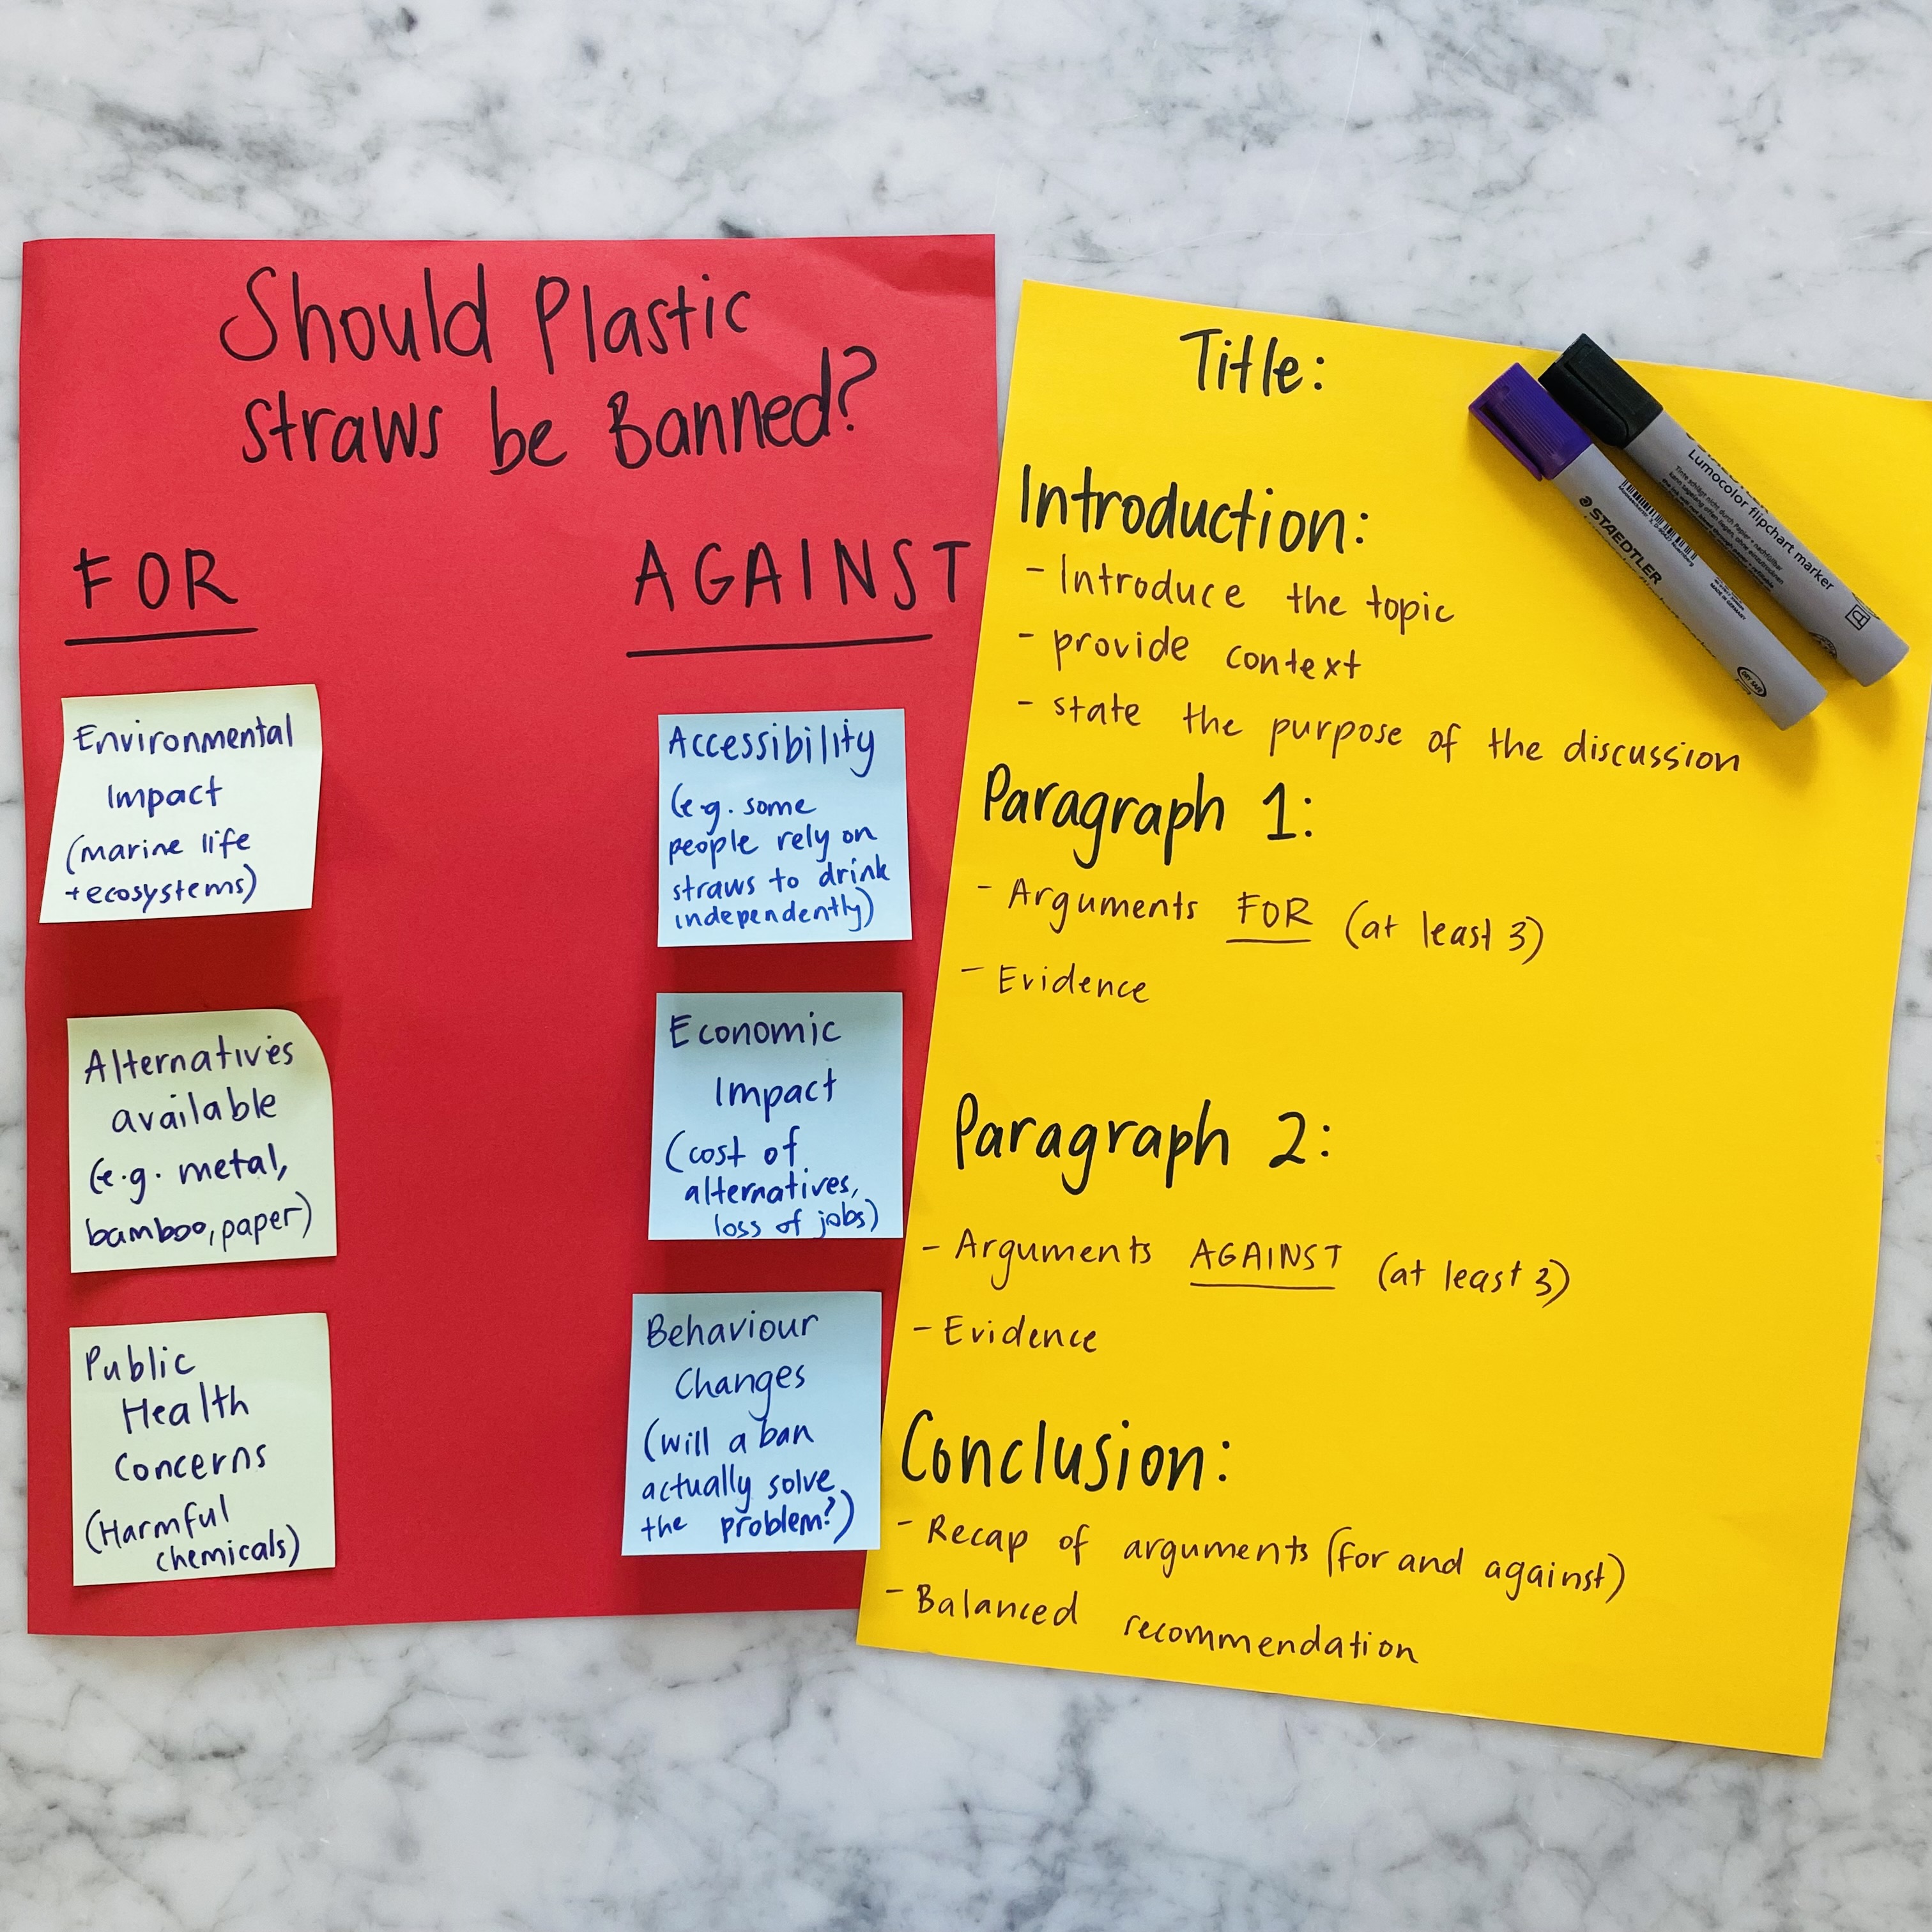 Should Plastic
straws be Banned?
FOR
Environmental
Impact
(marine life
+ecosystems)
Alternatives
available
(e.g. metal,
bamboo, paper)
Public
Health
Concerns
(Harmful
chemicals)
AGAINST
Accessibility
(e.g. some
people rely on
straws to drink
independently)
Economic
Impact
(cost of
alternatives,
loss of jobs)
Behaviour
Changes
(will a ban
actually solve
the problem?)
Title:
Introduction:
- Introduce the topic
- provide context
- state the purpose of the discussion
Paragraph 1:
- Arguments FOR (at least 3)
- Evidence
Paragraph 2:
- Arguments AGAINST (at least 3)
- Evidence
Conclusion:
- Recap of arguments (for and against)
- Balanced recommendation
STAEDTLER
Lumocolor flipchart marker